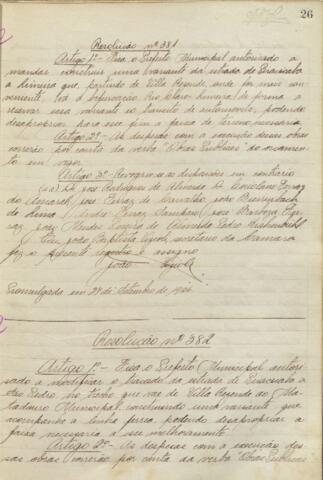 26
Resolução nº 381
Artigo 1º - Fica o Prefeito Municipal autorisado a
mandar construir uma variante da estrada de Piracicaba
a Limeira que, partindo de Villa Rezende, onde for mais con-
veniente, vá á bifurcação Rio Claro-Limeira, de forma a
reservar essa variante ao transito de automoveis, podendo
desapropriar para esse fim a faixa de terreno necessaria.
Artigo 2º - As despesas com a execução dessas obras
correrão por conta da verba "Obras Publicas" do orçamento
em vigor.
Artigo 3º - Revogam-se as disposições em contrario
de Almeida
do Amaral, José Ferraz de Carvalho, João
de Lima,
Pedro
Eu, João Baptista, secretario da Camara
fez o presente registro e assigno.
João
Promulgada em de Setembro de
Resolução nº 382
Artigo 1º - Fica o Prefeito Municipal autori-
sado a modificar o traçado da estrada de Piracicaba a
São Pedro, no trecho que vae de Villa Rezende ao Ma-
tadouro Municipal, construindo uma variante que
acompanhe a linha ferrea, podendo desapropriar a
faixa necessaria a esse melhoramento.
Artigo 2º - As despesas com a execução des-
sas obras correrão por conta da verba "Obras Publicas"